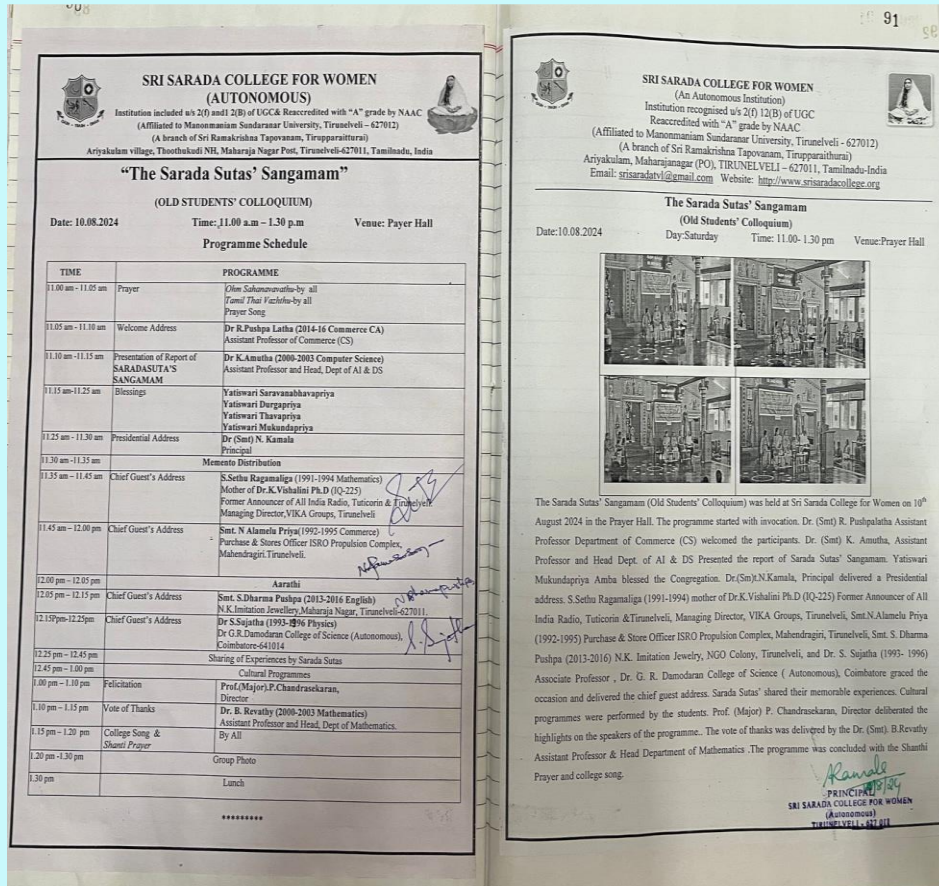 91
SRI SARADA COLLEGE FOR WOMEN
(AUTONOMOUS)
Institution included u/s 2(f) and1 2(B) of UGC& Reaccredited with “A” grade by NAAC
(Affiliated to Manonmaniam Sundaranar University, Tirunelveli - 627012)
(A branch of Sri Ramakrishna Tapovanam, Tirupparaitturai)
Ariyakulam village, Thoothukudi NH, Maharaja Nagar Post, Tirunelveli-627011, Tamilnadu, India
“The Sarada Sutas’ Sangamam”
(OLD STUDENTS’ COLLOQUIUM)
Date: 10.08.2024 Time: 11.00 a.m – 1.30 p.m Venue: Payer Hall
Programme Schedule
TIME PROGRAMME
11.00 am - 11.05 am Prayer Ohm Sahanavavathu-by all
Tamil Thai Vazhthu-by all
Prayer Song
11.05 am - 11.10 am Welcome Address Dr R.Pushpa Latha (2014-16 Commerce CA)
Assistant Professor of Commerce (CS)
11.10 am -11.15 am Presentation of Report of Dr K.Amutha (2000-2003 Computer Science)
SARADASUTA’S Assistant Professor and Head, Dept of AI & DS
SANGAMAM
11.15 am-11.25 am Blessings Yatiswari Saravanabhavapriya
Yatiswari Durgapriya
Yatiswari Thavapriya
Yatiswari Mukundapriya
11.25 am - 11.30 am Presidential Address Dr (Smt) N. Kamala
Principal
11.30 am -11.35 am Memento Distribution
11.35 am – 11.45 am Chief Guest’s Address S.Sethu Ragamaliga (1991-1994 Mathematics)
Mother of Dr.K.Vishalini Ph.D (IQ-225)
Former Announcer of All India Radio, Tuticorin & Tirunelveli.
Managing Director,VIKA Groups, Tirunelveli
11.45 am – 12.00 pm Chief Guest’s Address Smt. N Alamelu Priya(1992-1995 Commerce)
Purchase & Stores Officer ISRO Propulsion Complex,
Mahendragiri.Tirunelveli.
12.00 pm – 12.05 pm Aarathi
12.05 pm - 12.15 pm Chief Guest’s Address Smt. S.Dharma Pushpa (2013-2016 English)
N.K.Imitation Jewellery,Maharaja Nagar, Tirunelveli-627011.
12.15Ppm-12.25pm Chief Guest’s Address Dr S.Sujatha (1993-1996 Physics)
Dr G.R.Damodaran College of Science (Autonomous),
Coimbatore-641014
12.25 pm – 12.45 pm Sharing of Experiences by Sarada Sutas
12.45 pm – 1.00 pm Cultural Programmes
1.00 pm – 1.10 pm Felicitation Prof.(Major).P.Chandrasekaran,
Director
1.10 pm – 1.15 pm Vote of Thanks Dr. B. Revathy (2000-2003 Mathematics)
Assistant Professor and Head, Dept of Mathematics.
1.15 pm – 1.20 pm College Song & By All
Shanti Prayer
1.20 pm -1.30 pm Group Photo
1.30 pm Lunch
*********
SRI SARADA COLLEGE FOR WOMEN
(An Autonomous Institution)
Institution recognised u/s 2(f) 12(B) of UGC
Reaccredited with “A” grade by NAAC
(Affiliated to Manonmaniam Sundaranar University, Tirunelveli - 627012)
(A branch of Sri Ramakrishna Tapovanam, Tirupparaithurai)
Ariyakulam, Maharajanagar (PO), TIRUNELVELI – 627011, Tamilnadu-India
Email: srisaradatvl@gmail.com Website: http://www.srisaradacollege.org
The Sarada Sutas’ Sangamam
(Old Students’ Colloquium)
Date:10.08.2024 Day:Saturday Time: 11.00- 1.30 pm Venue:Prayer Hall
The Sarada Sutas’ Sangamam (Old Students’ Colloquium) was held at Sri Sarada College for Women on 10th
August 2024 in the Prayer Hall. The programme started with invocation. Dr. (Smt) R. Pushpalatha Assistant
Professor Department of Commerce (CS) welcomed the participants. Dr. (Smt) K. Amutha, Assistant
Professor and Head Dept. of AI & DS Presented the report of Sarada Sutas’ Sangamam. Yatiswari
Mukundapriya Amba blessed the Congregation. Dr.(Smt).N.Kamala, Principal delivered a Presidential
address. S.Sethu Ragamaliga (1991-1994) mother of Dr.K.Vishalini Ph.D (IQ-225) Former Announcer of All
India Radio, Tuticorin &Tirunelveli, Managing Director, VIKA Groups, Tirunelveli, Smt.N.Alamelu Priya
(1992-1995) Purchase & Store Officer ISRO Propulsion Complex, Mahendragiri, Tirunelveli, Smt. S. Dharma
Pushpa (2013-2016) N.K. Imitation Jewelry, NGO Colony, Tirunelveli, and Dr. S. Sujatha (1993- 1996)
Associate Professor , Dr. G. R. Damodaran College of Science ( Autonomous), Coimbatore graced the
occasion and delivered the chief guest address. Sarada Sutas’ shared their memorable experiences. Cultural
programmes were performed by the students. Prof. (Major) P. Chandrasekaran, Director deliberated the
highlights on the speakers of the programme.. The vote of thanks was delivered by the Dr. (Smt). B.Revathy
Assistant Professor & Head Department of Mathematics .The programme was concluded with the Shanthi
Prayer and college song.
PRINCIPAL
SRI SARADA COLLEGE FOR WOMEN
(Autonomous)
TIRUNELVELI - 627 011